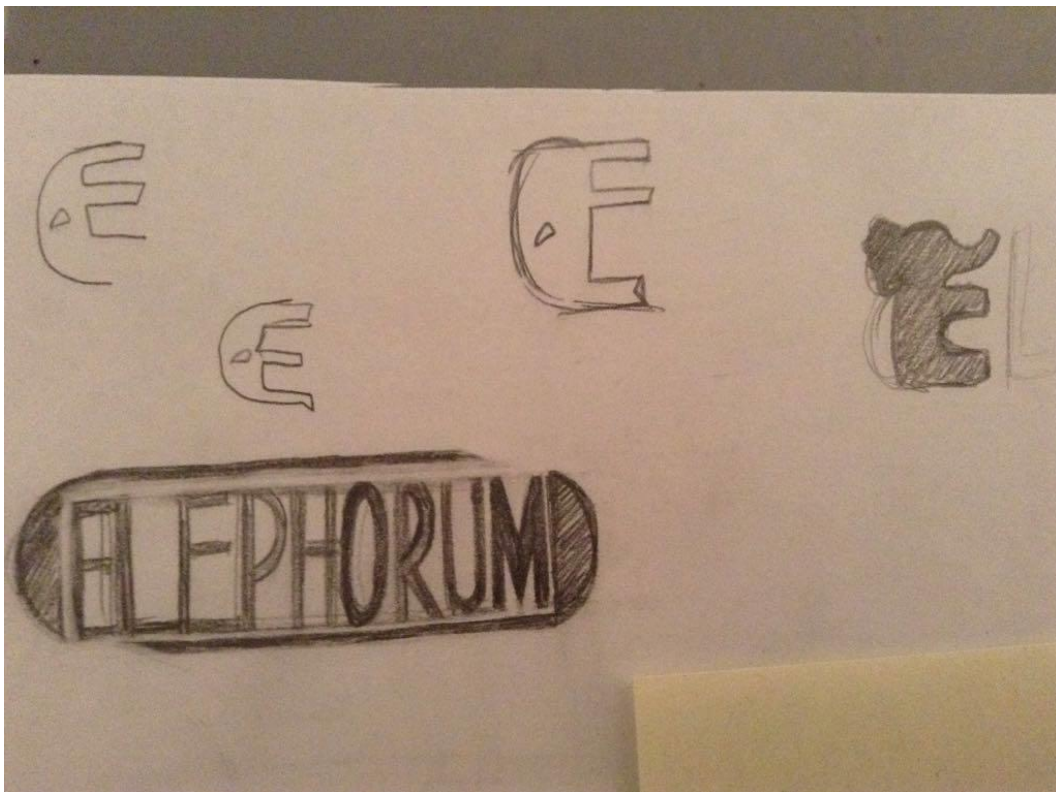 E E E
E
ELEPHORUM